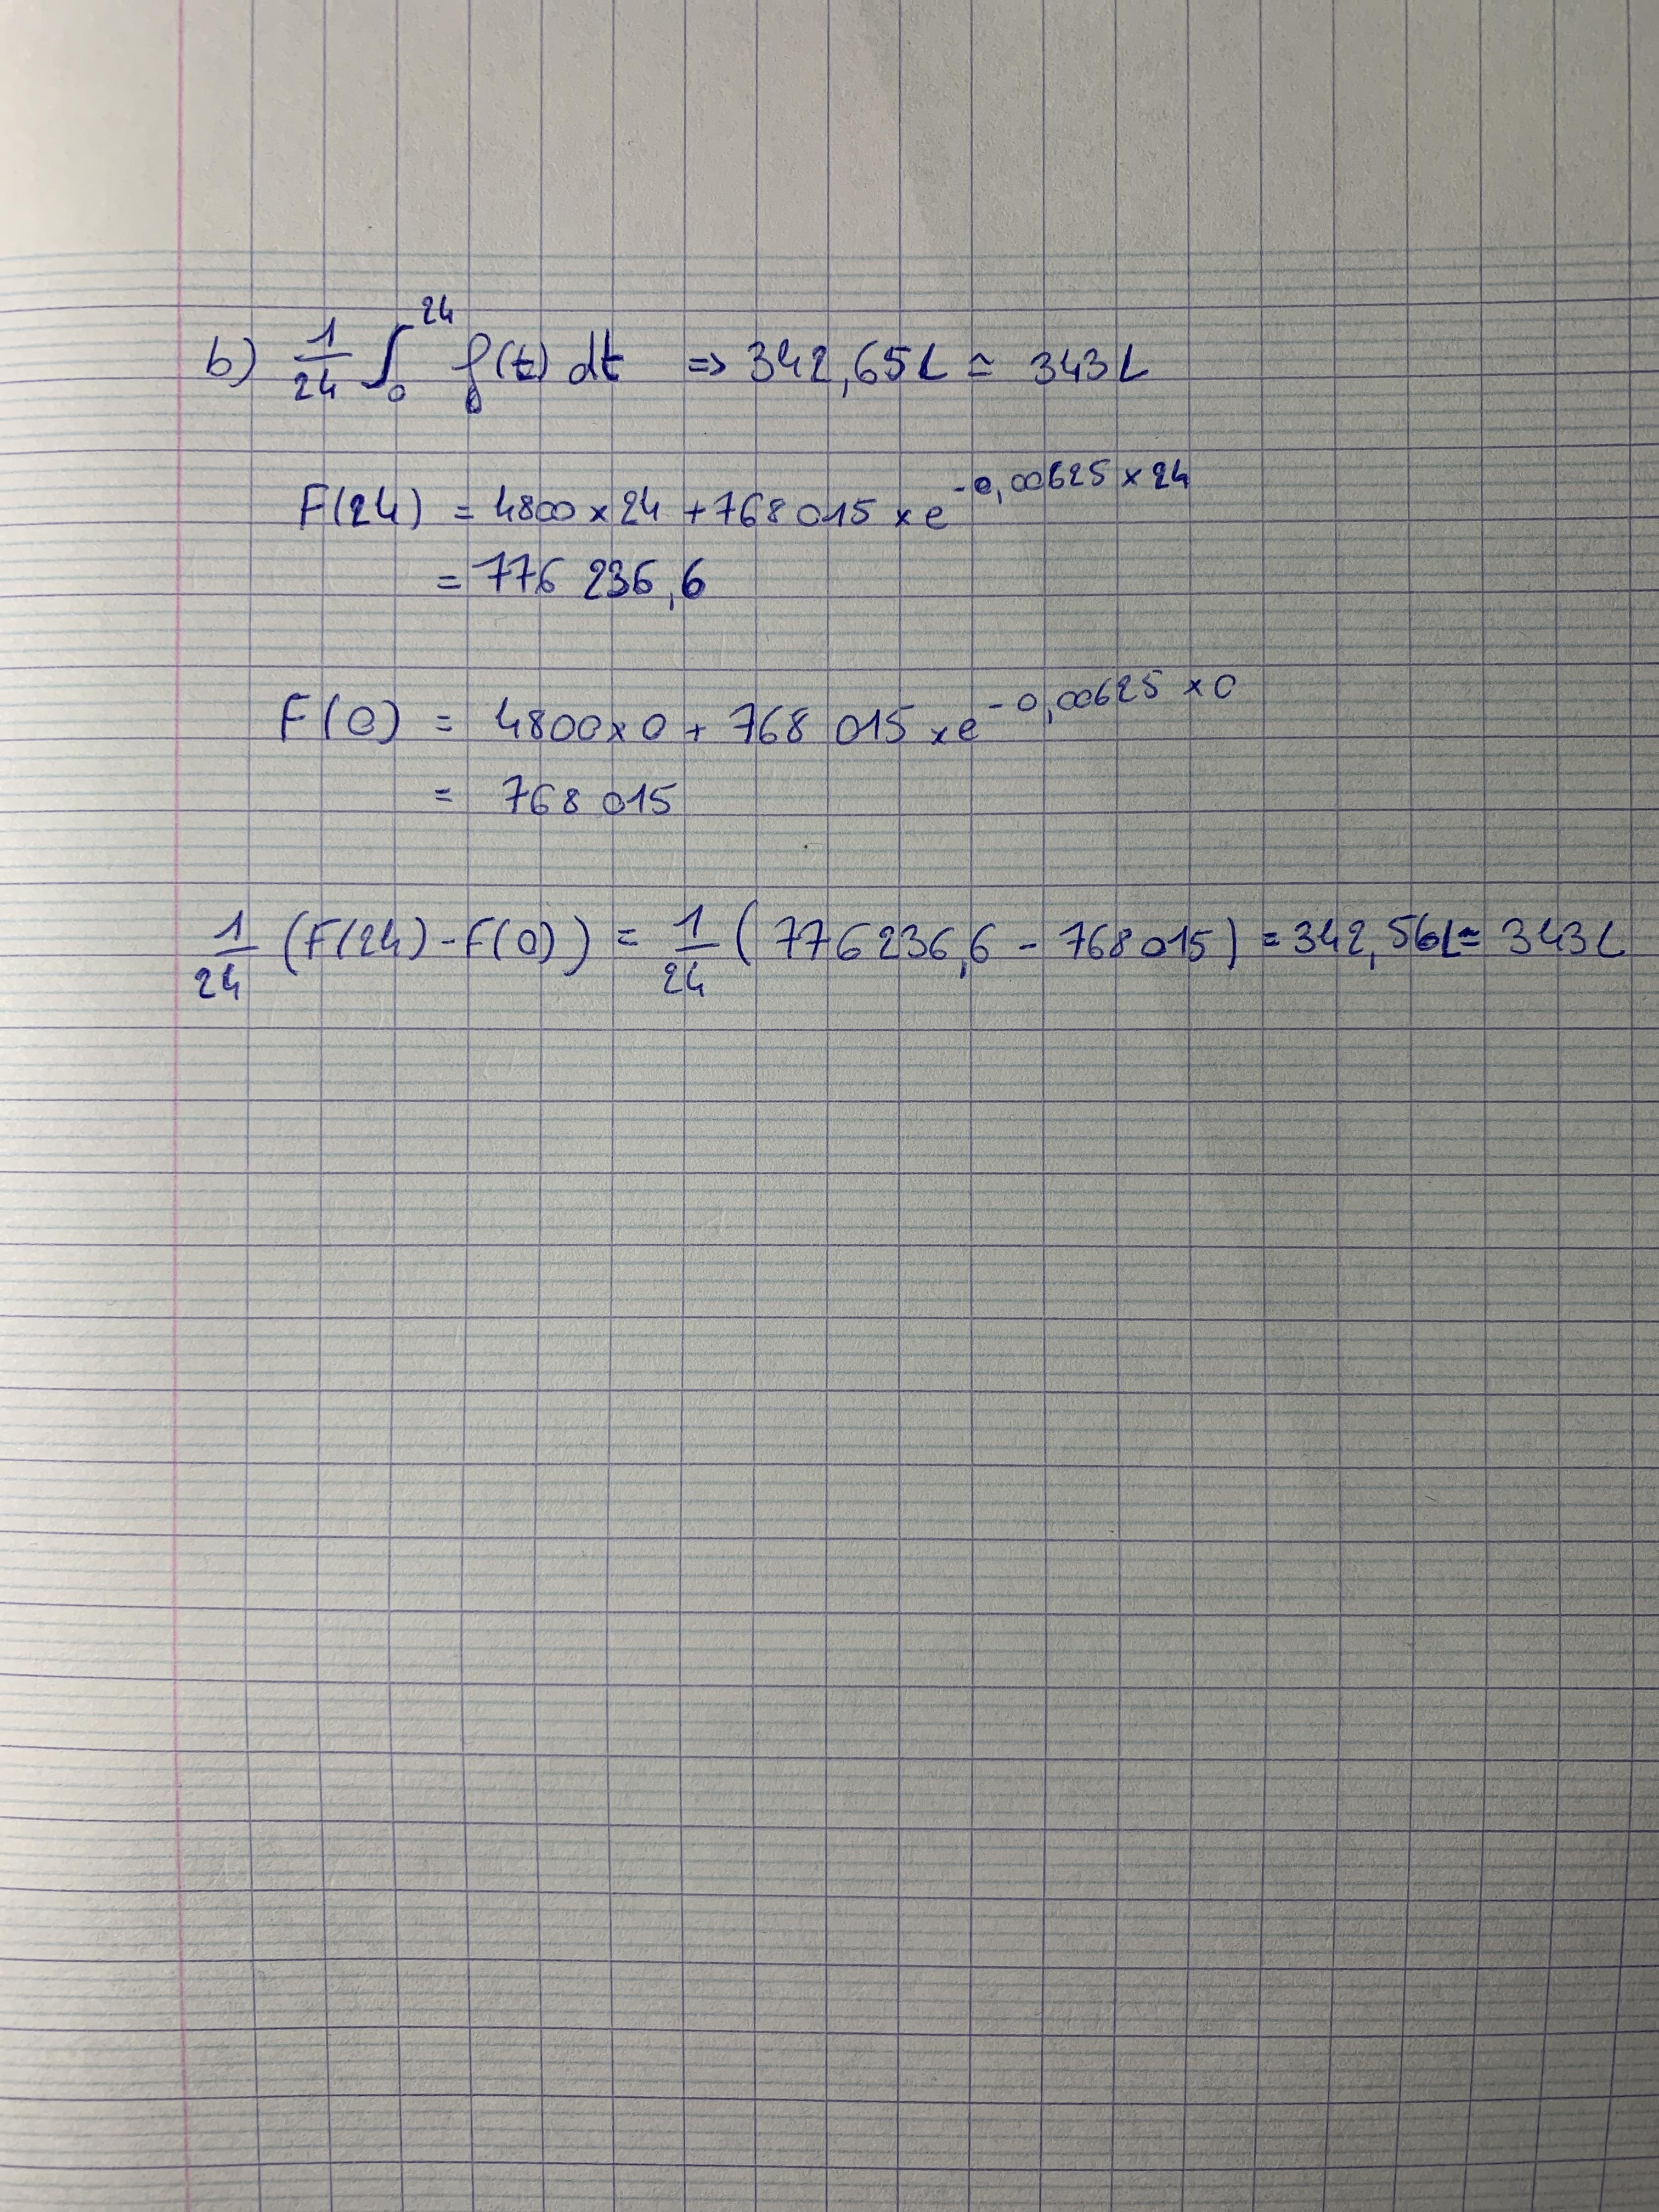 b) 1/24 ∫₀²⁴ f(t) dt ⇒ 342,65L ≃ 343L
F(24) = 4800 × 24 + 768 015 × e^(-0,00625 × 24)
= 776 236,6
F(0) = 4800 × 0 + 768 015 × e^(-0,00625 × 0)
= 768 015
1/24 (F(24) - F(0)) = 1/24 (776 236,6 - 768 015) = 342,56L ≃ 343L